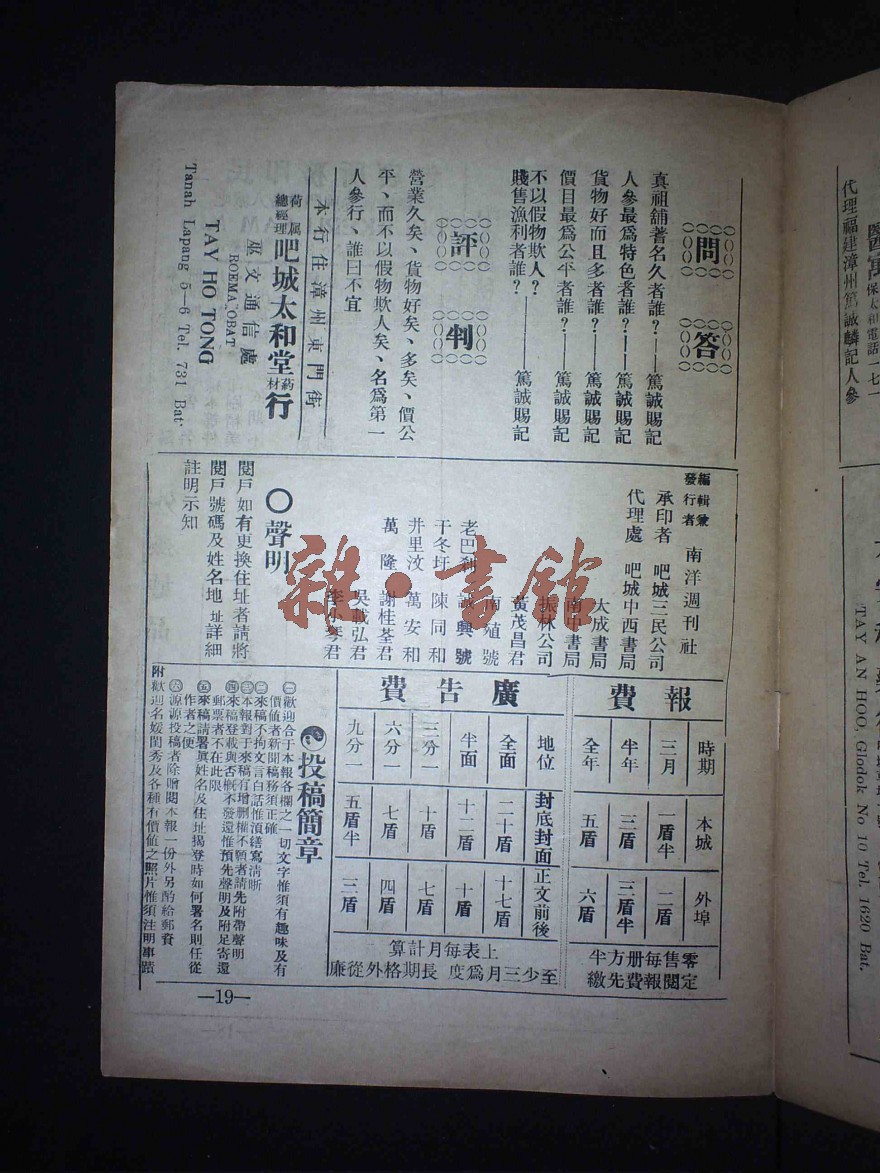 問答
真祖舖著名久者誰？——篤誠賜記
人參最爲特色者誰？——篤誠賜記
貨物好而且多者誰？——篤誠賜記
價目最爲公平者誰？——篤誠賜記
不以假物欺人？
賤售漁利者誰？——篤誠賜記
評判
營業久矣、貨物好矣、多矣、價公
平、而不以假物欺人矣、名爲第一
人參行、誰曰不宜
本行住漳州東門街
荷属總經理 吧城太和堂葯材行
巫文通信處
ROEMA OBAT
TAY HO TONG
Tanah Lapang 5—6 Tel. 731 Bat.
編輯兼發行者 南洋週刊社
承印者 吧城三民公司
代理處 吧城中西書局
大成書局
南中書局
振林公司
黃茂昌君
南殖號
老巴刹 誠興號
干冬圩 陳同和
井里汶 萬安和
萬隆 謝桂荃君
吳載弘君
李小琴君
○聲明
閱戶如有更換住址者請將
閱戶號碼及姓名地址詳細
註明示知
報費
時期 本城 外埠
三月 一盾半 二盾
半年 三盾 三盾半
全年 五盾 六盾
零售每册方半
定閱報費先繳
廣告費
地位 封底封面 正文前後
全面 二十盾 十七盾
半面 十二盾 十盾
三分一 十盾 七盾
六分一 七盾 四盾
九分一 五盾半 三盾
上表每月計算
至少三月爲度 長期格外從廉
投稿簡章
㊀歡迎合于本報各欄之一切文字惟須有趣味及有
價值者新聞稿務須正確
㊁來稿不拘文言白話惟須繕寫淸晰
㊂本報對于來稿有增删權不願者請先附帶聲明
㊃來稿登載與否槪不發還惟預先聲明及附足寄還
郵票者不在此限
㊄來稿請署眞姓名及住址揭登時如何署名則任從
作者之便
㊅源源投稿者除贈閱本報一份外另酌給郵費
附歡迎名媛閨秀及各種有價値之照片惟須注明事蹟
—19—
雜·書館
代理福建漳州篤誠麟記人參
保太和電話一七一
TAY AN HOO, Glodok No 10 Tel. 1620 Bat.